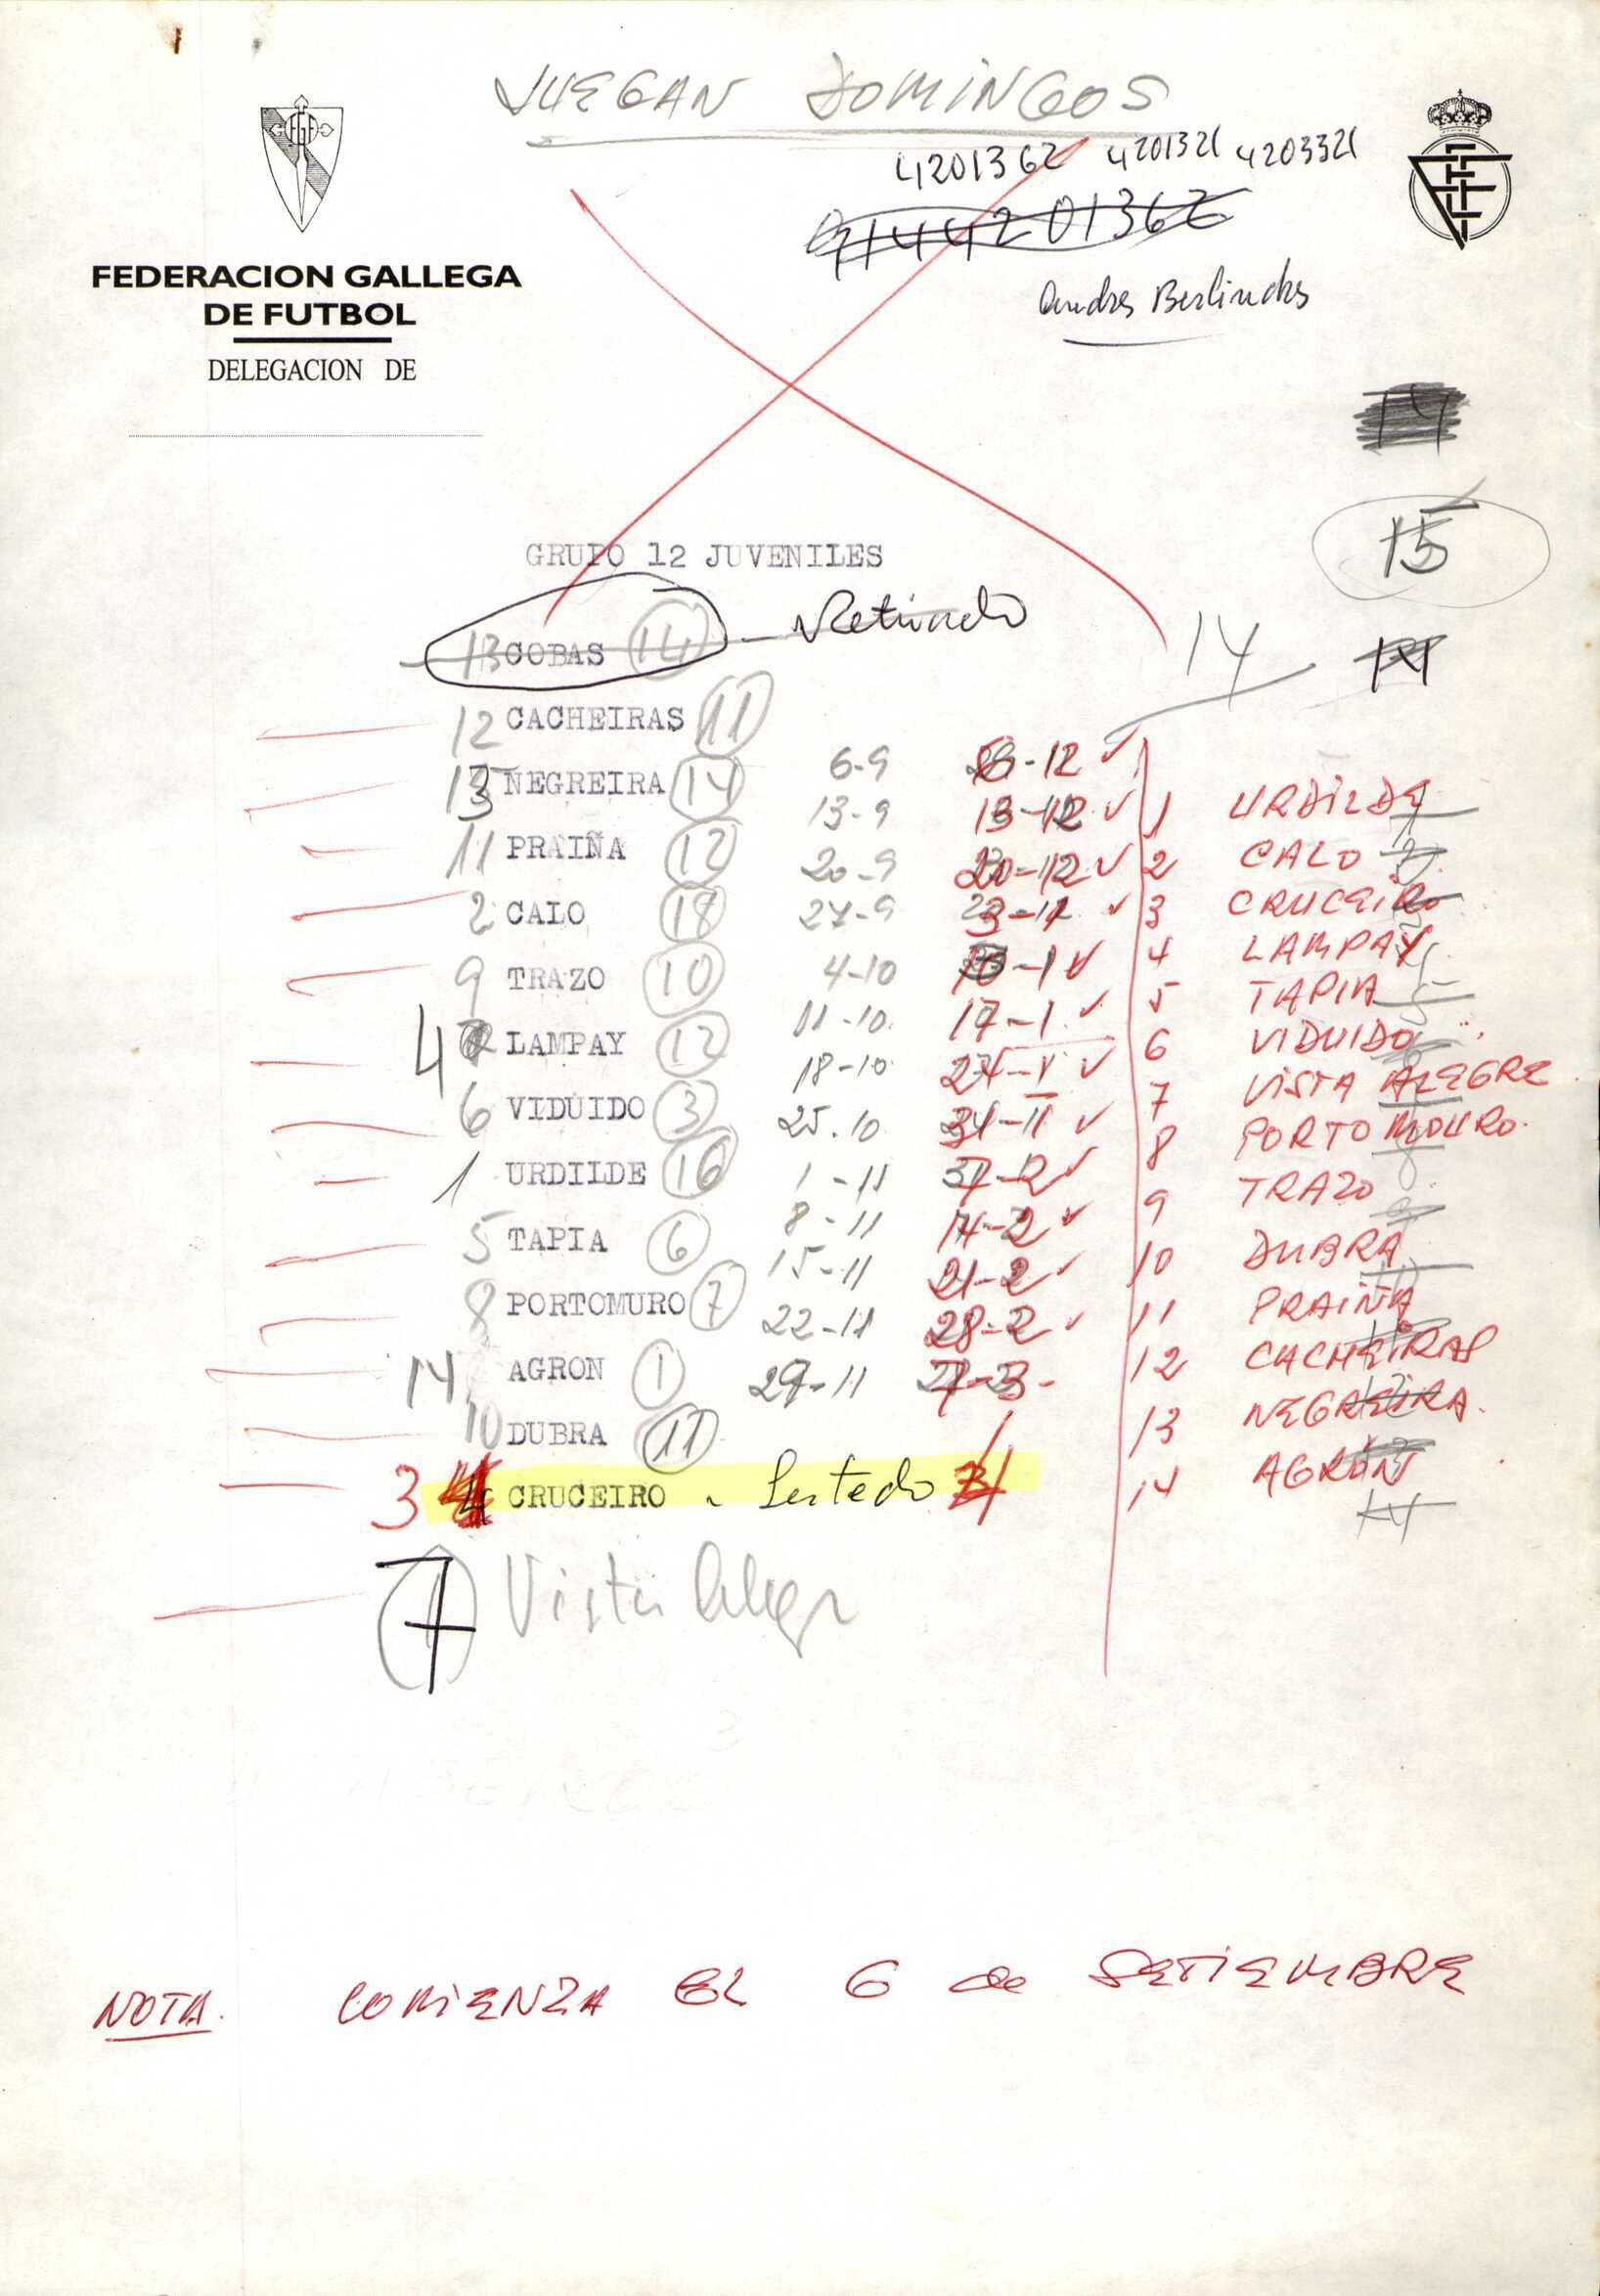 JUEGAN DOMINGOS
4201362 4201321 4203321
FEDERACION GALLEGA
DE FUTBOL
DELEGACION DE
14
15
GRUPO 12 JUVENILES
13 COBAS 14 - Retirado
14
12 CACHEIRAS 11
13 NEGREIRA 14 6-9
11 PRAIÑA 12 13-9 13-12 1 URDILDE
2 CALO 18 20-9 20-12 2 CALO
27-9 3-1 3 CRUCEIRO
9 TRAZO 10 4-10 4 LAMPAY
4 LAMPAY 12 11-10 17-1 5 TAPIA
18-10 24-1 6 VIDUIDO
6 VIDUIDO 3 25.10 31-1 7 VISTA ALEGRE
1 URDILDE 16 1-11 7-2 8 PORTO MOURO.
5 TAPIA 6 8-11 14-2 9 TRAZO
15-11 21-2 10 DUBRA
8 PORTOMURO 7 22-11 28-2 11 PRAIÑA
14 AGRON 1 29-11 7-3 12 CACHEIRAS
10 DUBRA 11 13 NEGREIRA.
3 CRUCEIRO 14 AGRÓN
7 Vista Alegr
NOTA. COMIENZA EL 6 de SETIEMBRE